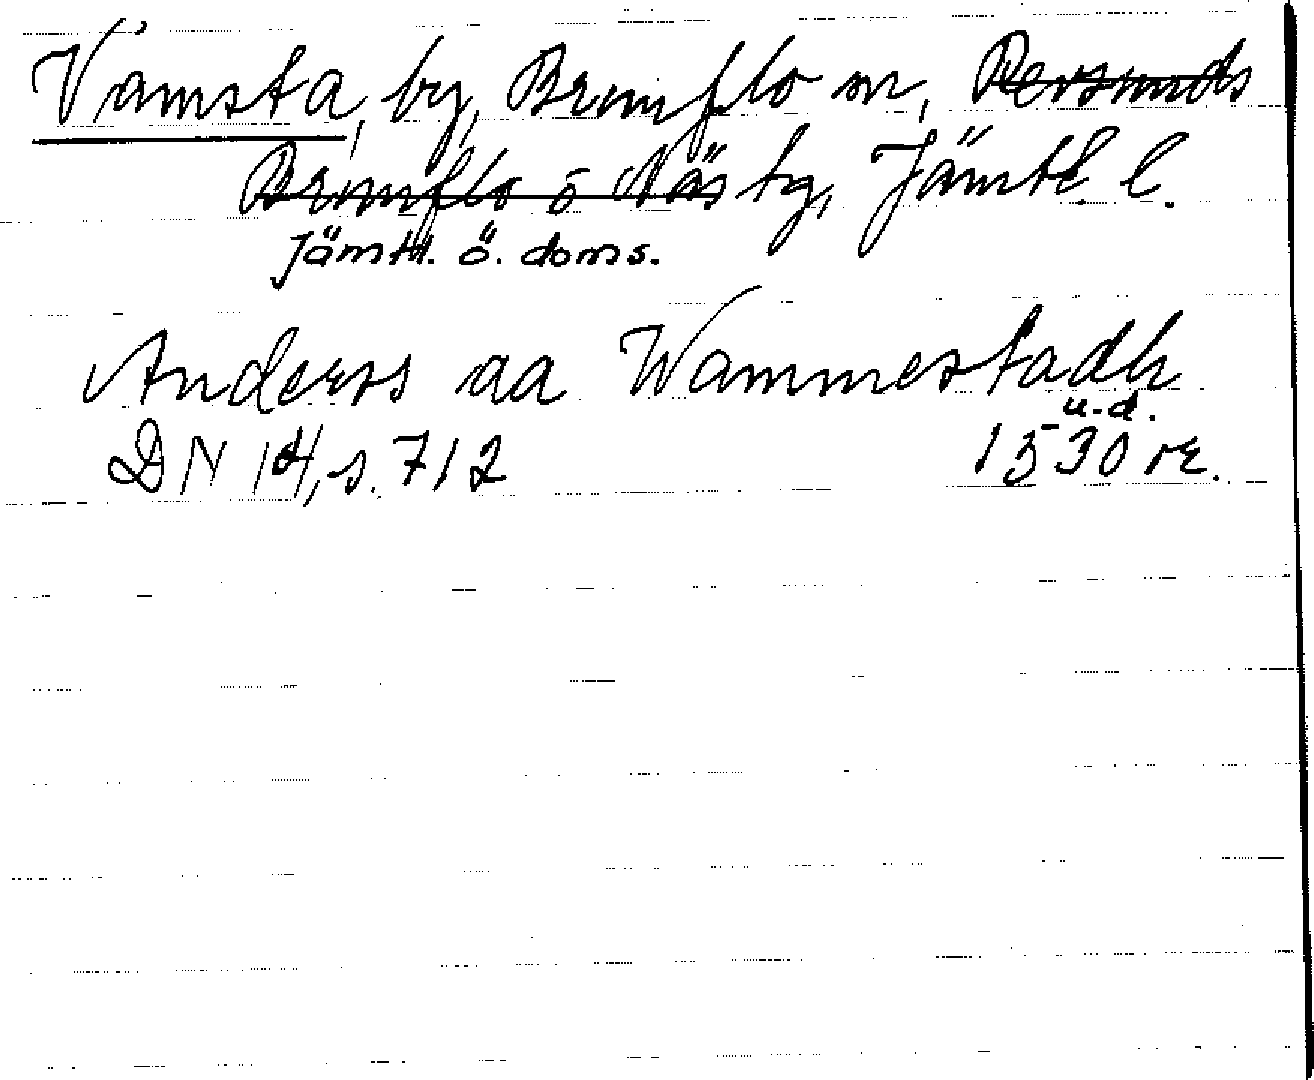 Vamsta, by, Brunflo sn, Revsunds
Brunflo o Näs tg, Jämtl. l.
Jämtl. ö. doms.
Anders aa Wammestadh
u.d.
DN 14, s. 712 1530 re.